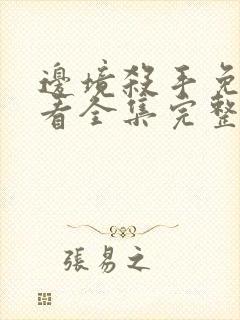 邊境殺手免
看全集完整
張易之